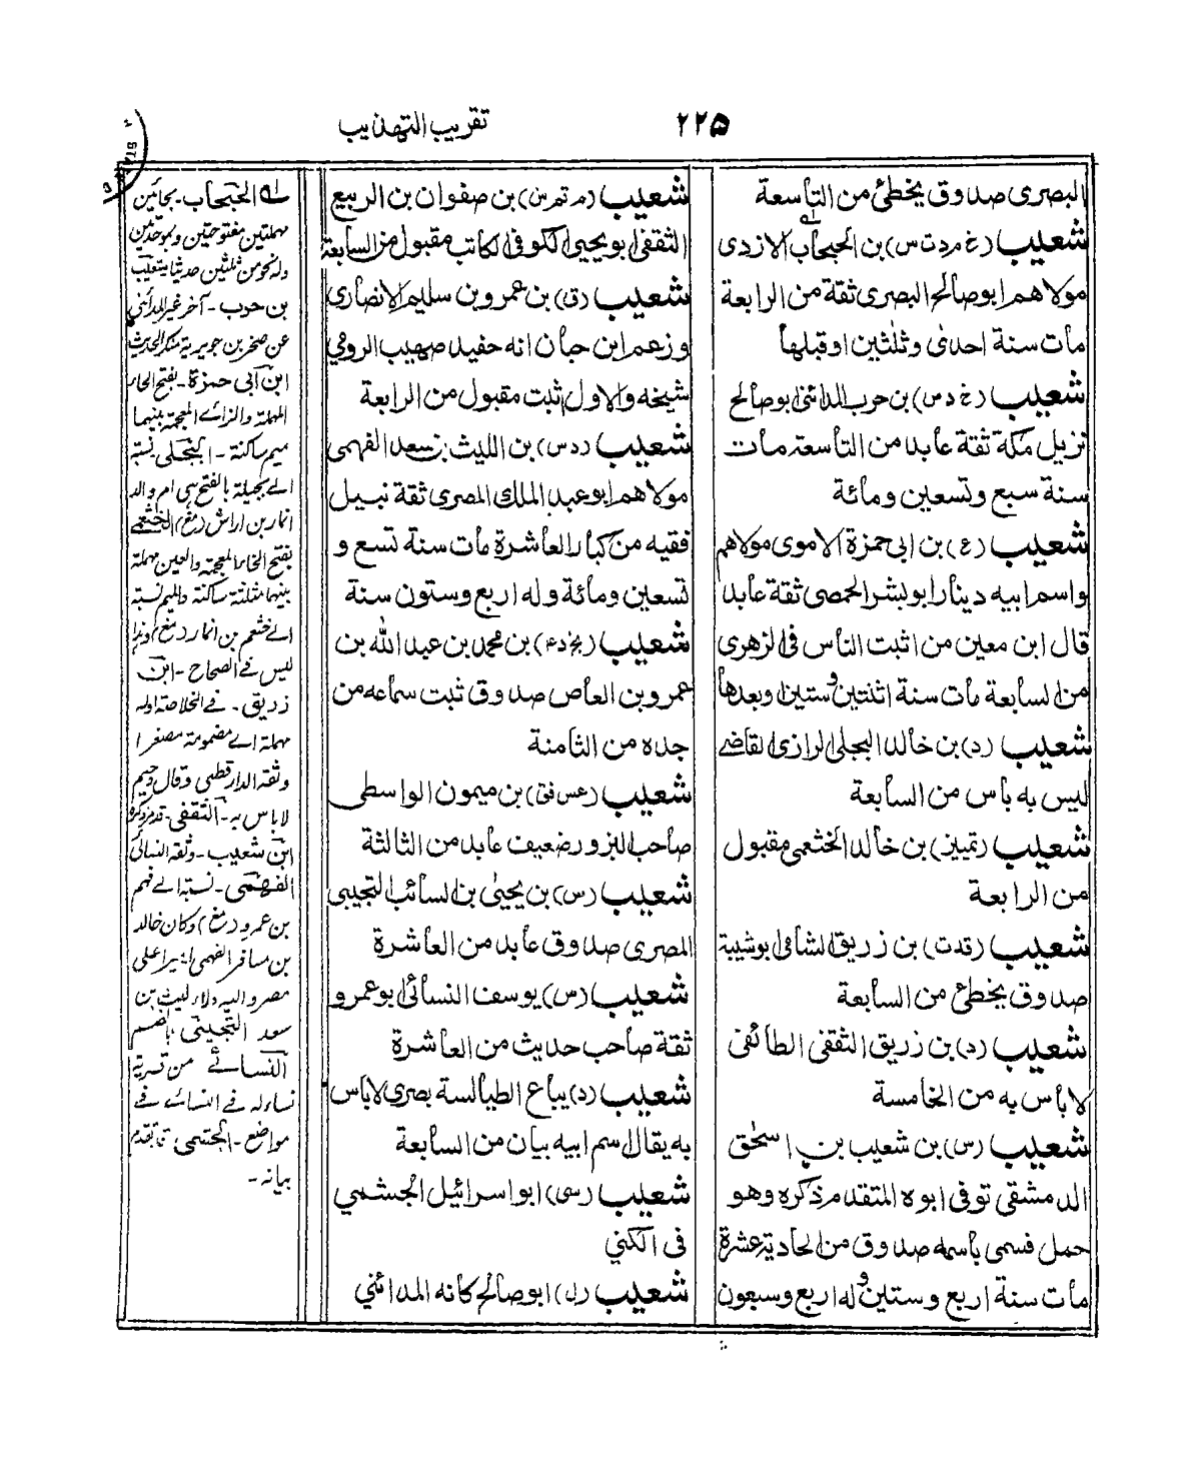 تقريب التهذيب
٢٢٥
البصرى صدوق يخطئ من التاسعة
شعيب (خ م د ت س) بن الحبحاب الازدى
مولاهم ابو صالح البصرى ثقة من الرابعة
مات سنة احدى وثلثين او قبلها
شعيب (خ د س) بن حرب المدائنى ابو صالح
نزيل مكة ثقة عابد من التاسعة مات
سنة سبع وتسعين ومائة
شعيب (ع) بن ابى حمزة الاموى مولاهم
واسم ابيه دينار ابو بشر الحمصى ثقة عابد
قال ابن معين من اثبت الناس فى الزهرى
من السابعة مات سنة اثنتين وستين او بعدها
شعيب (د) بن خالد البجلى الرازى القاضے
ليس به باس من السابعة
شعيب (تمييز) بن خالد الخثعمى مقبول
من الرابعة
شعيب (قد ت) بن زريق الشامى ابو شيبة
صدوق يخطئ من السابعة
شعيب (د) بن زريق الثقفى الطائفى
لا بأس به من الخامسة
شعيب (س) بن شعيب بن اسحٰق
الدمشقى توفى ابوه المتقدم ذكره وهو
حمل فسمى باسمه صدوق من الحادية عشرة
مات سنة اربع وستين وله اربع وسبعون
شعيب (م تم س) بن صفوان بن الربيع
الثقفى ابو يحيى الكوفى الكاتب مقبول من السابعة
شعيب (ق) بن عمرو بن سليم الانصارى
وزعم ابن حبان انه حفيد صهيب الرومي
شيخه والاول اثبت مقبول من الرابعة
شعيب (د س) بن الليث بن سعد الفهمى
مولاهم ابو عبد الملك المصرى ثقة نبيل
فقيه من كبار العاشرة مات سنة تسع و
تسعين ومائة وله اربع وستون سنة
شعيب (بخ د ٤) بن محمد بن عبد الله بن
عمرو بن العاص صدوق ثبت سماعه من
جده من الثامنة
شعيب (عس فق) بن ميمون الواسطى
صاحب البزور ضعيف عابد من الثالثة
شعيب (س) بن يحيىٰ بن السائب التجيبى
المصرى صدوق عابد من العاشرة
شعيب (س) يوسف النسائى ابو عمرو
ثقة صاحب حديث من العاشرة
شعيب (د) بياع الطيالسة بصرى لا باس
به يقال اسم ابيه بيان من السابعة
شعيب (سى) ابو اسرائيل الجشمي
فى الكني
شعيب (ل) ابو صالح كانه المدائني
لـه الحبحاب - بحائين
مهملتين مفتوحتين وموحدتين
وله نحو من ثلثين حديثا شعيب
بن حرب - آخر غير المدائنى
عن صخر بن جويرية منكر الحديث
ابن ابى حمزة - بفتح الحاء
المهملة والزائے المعجمة بينهما
ميم ساكنة - البجلى نسبة
الے بجيلة بالفتح ہى ام والد
انمار بن اراش (مغ) الخثعمے
بفتح الخاء المعجمة والعين مهملة
بينهما مثلثة ساكنة والميم نسبة
الے خثعم بن انمار (مغ) وہذا
ليس فے الصحاح - ابن
زريق - فے الخلاصة اوله
مهملة اے مضمومة مصغرا
وثقه الدار قطنى وقال دحيم
لا باس به - الثقفى - قدم ذكره
ابن شعيب - وثقه النسائى
الفهمى - نسبة الے فهم
بن عمرو (مغ) وكان خالد
بن مسافر الفهمى اميرا على
مصر واليه ولاء ليث بن
سعد التجيبى بالضم
النسائے من قرية
نسا وله فے النسائے فے
مواضع - الجشمى قد تقدم
بيانه -